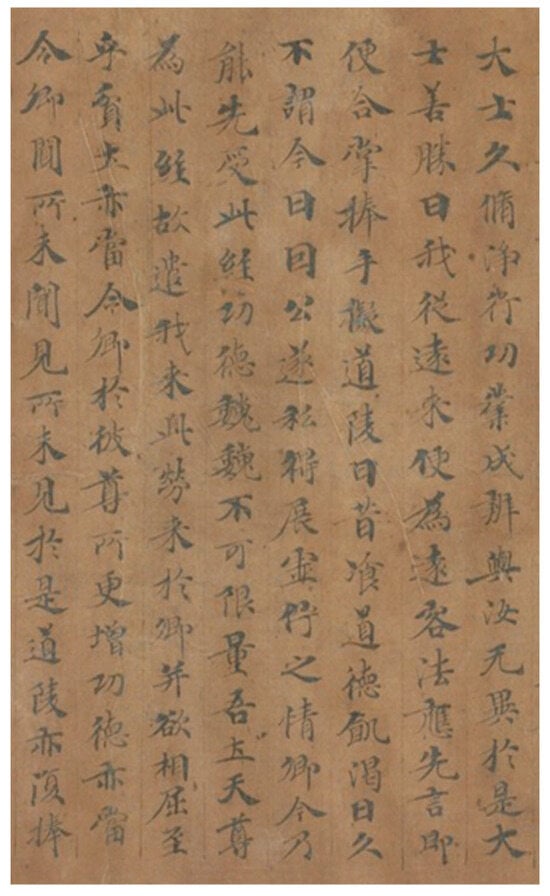 大士久脩淨行功業成辦與汝无異於是大
士善勝曰我從遠來便為遠客法應先言即
便合掌捧手擬道陵曰昔飡道德飢渴日久
不謂今日因公遂私得展虛佇之情卿今乃
能先受此經功德巍巍不可限量吾土天尊
為此經故遣我來此勞來於卿并欲相屈至
乎賓土亦當令卿於彼尊所更增功德亦當
令卿聞所未聞見所未見於是道陵亦復捧